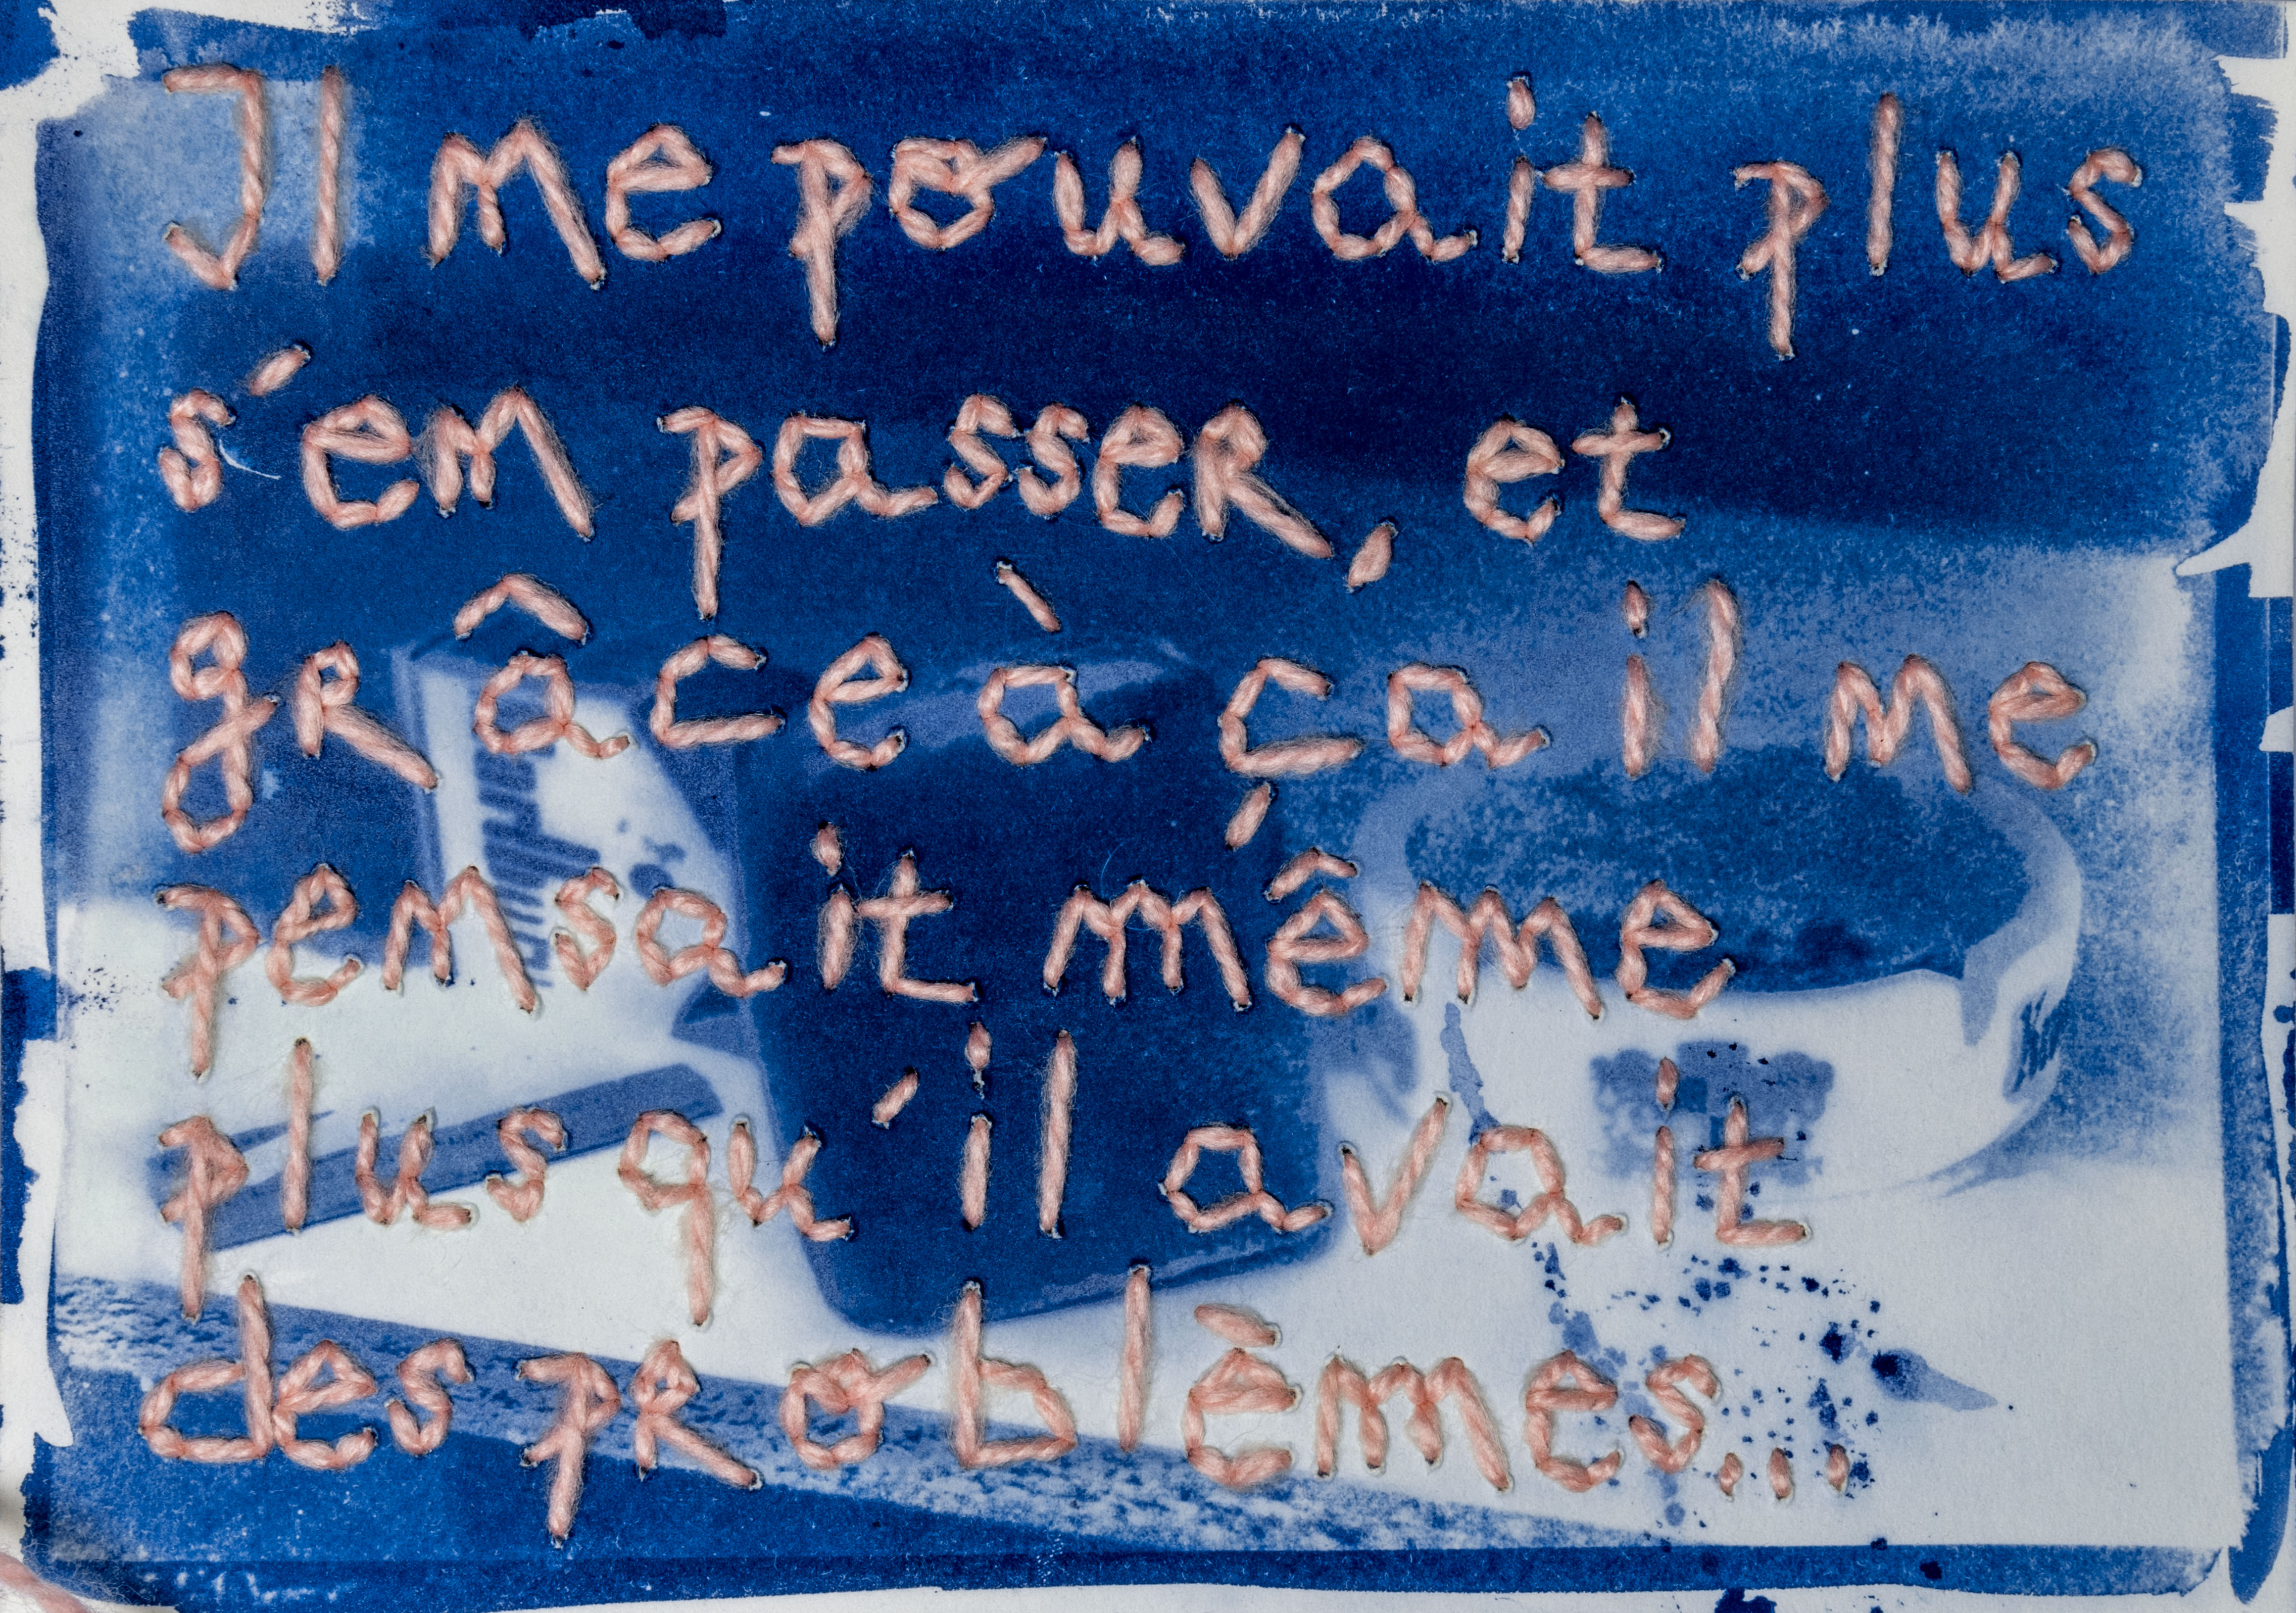 Il ne pouvait plus
s'en passer, et
grâce à ça il ne
pensait même
plus qu'il avait
des problèmes...